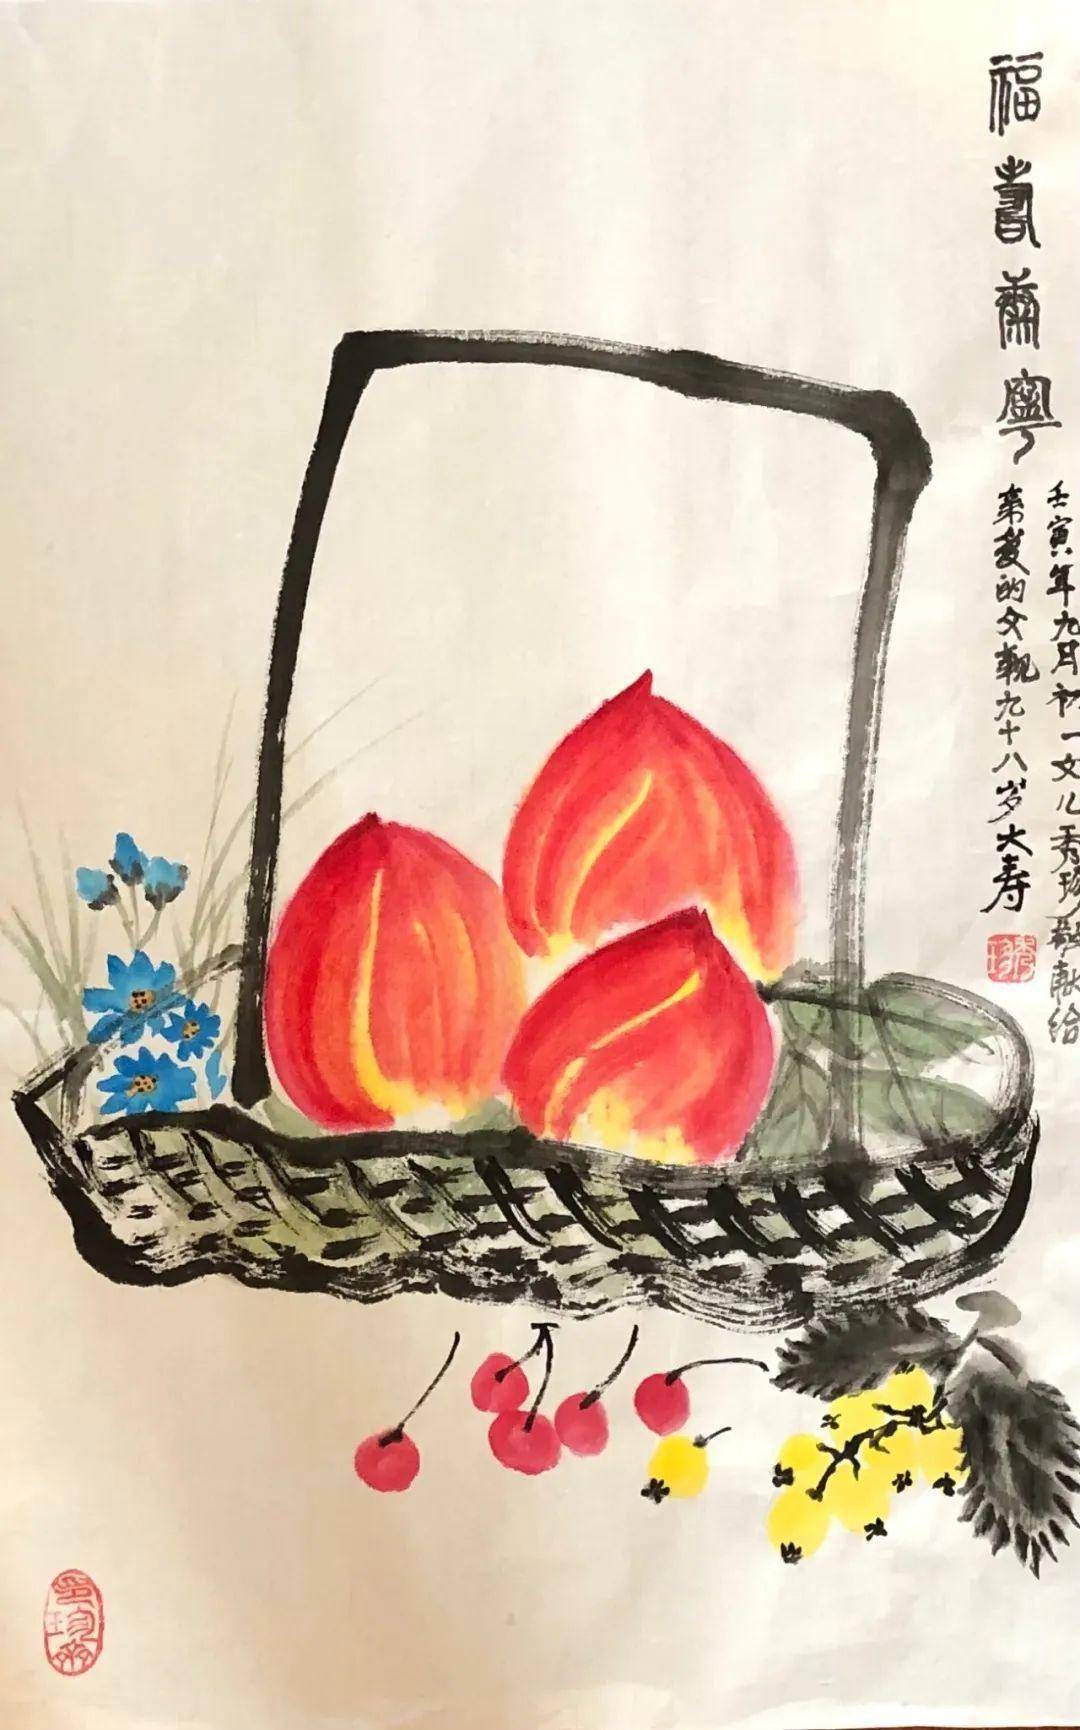 福壽康寧
壬寅年九月初一女儿秀珍敬献给
亲爱的父親九十八岁大寿
秀珍